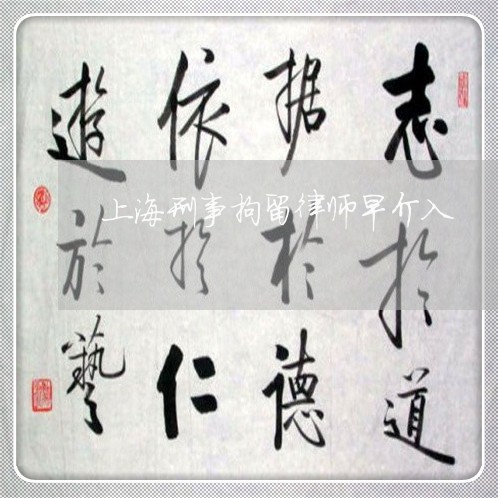 志於道
据於德
依於仁
遊於藝
上海刑事拘留律师早介入